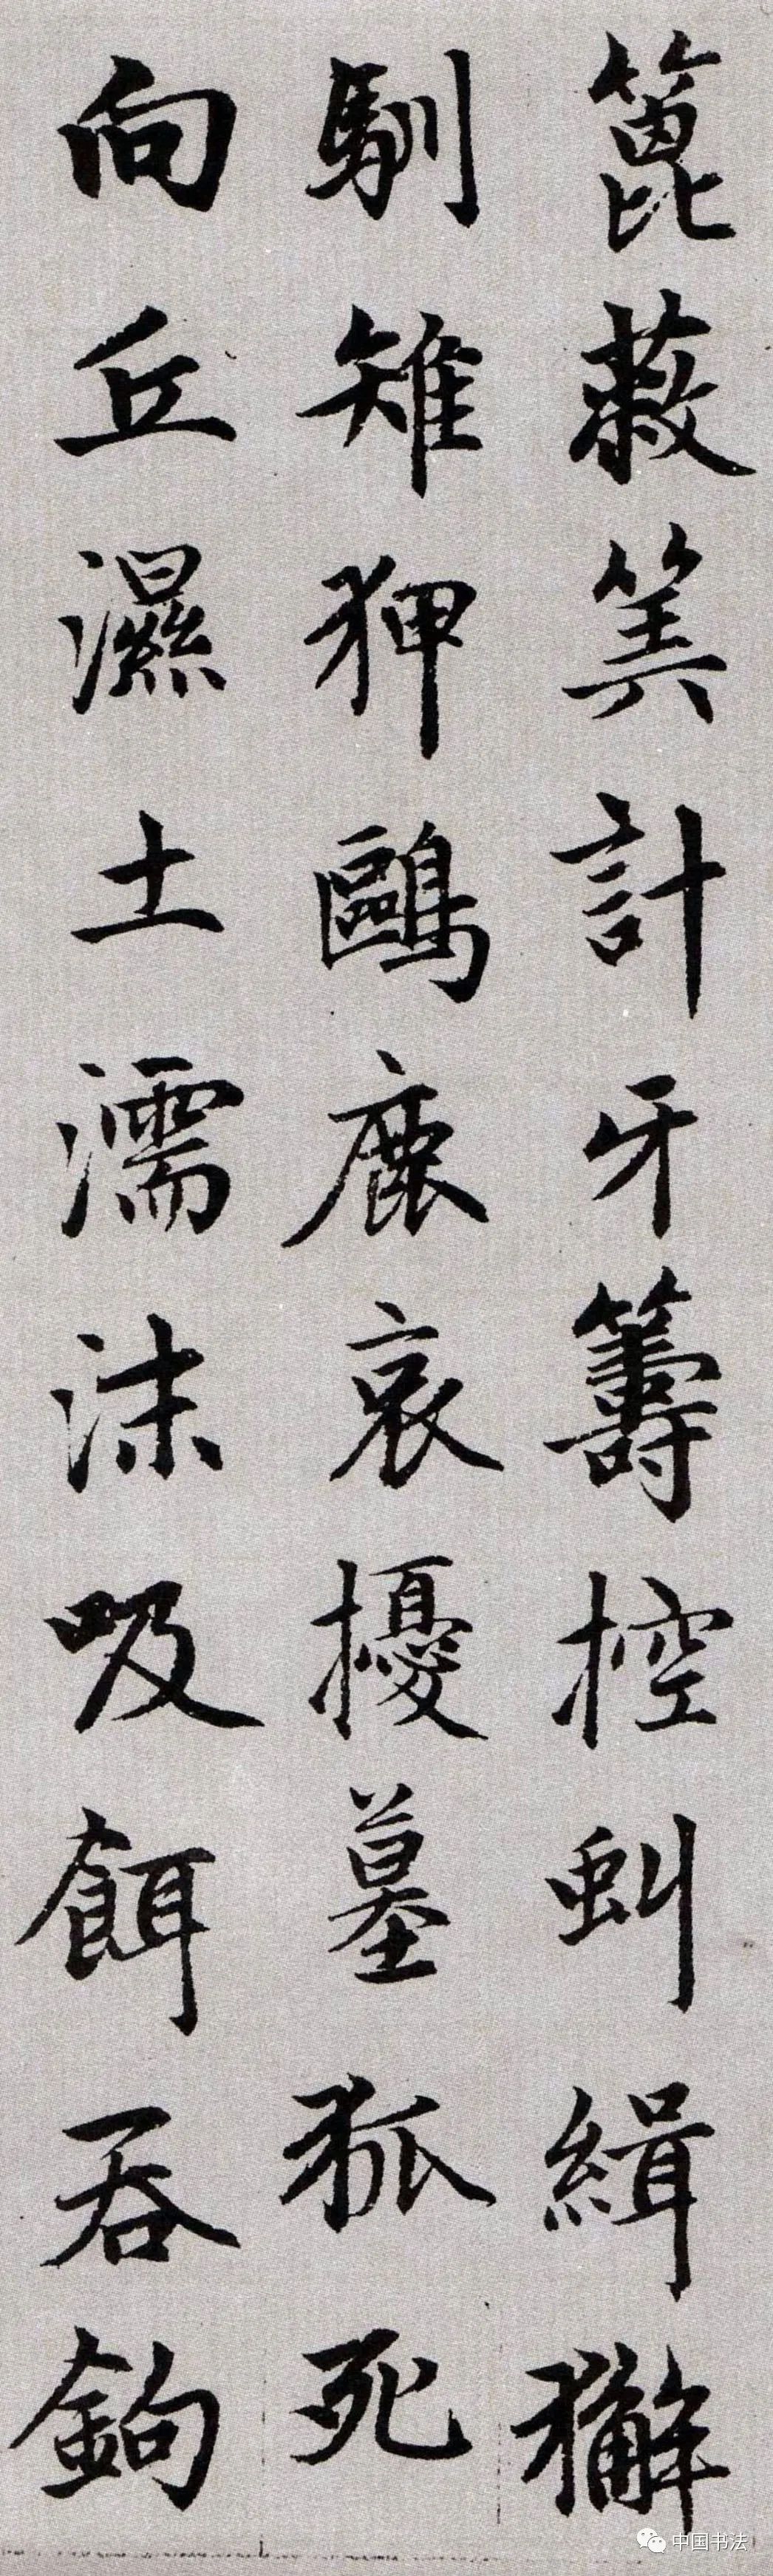 篦蔽筭計牙籌控虯緝獬
馴雉狎鷗鹿哀擾墓狐死
向丘濕土濡沫吸餌吞鉤
中国书法